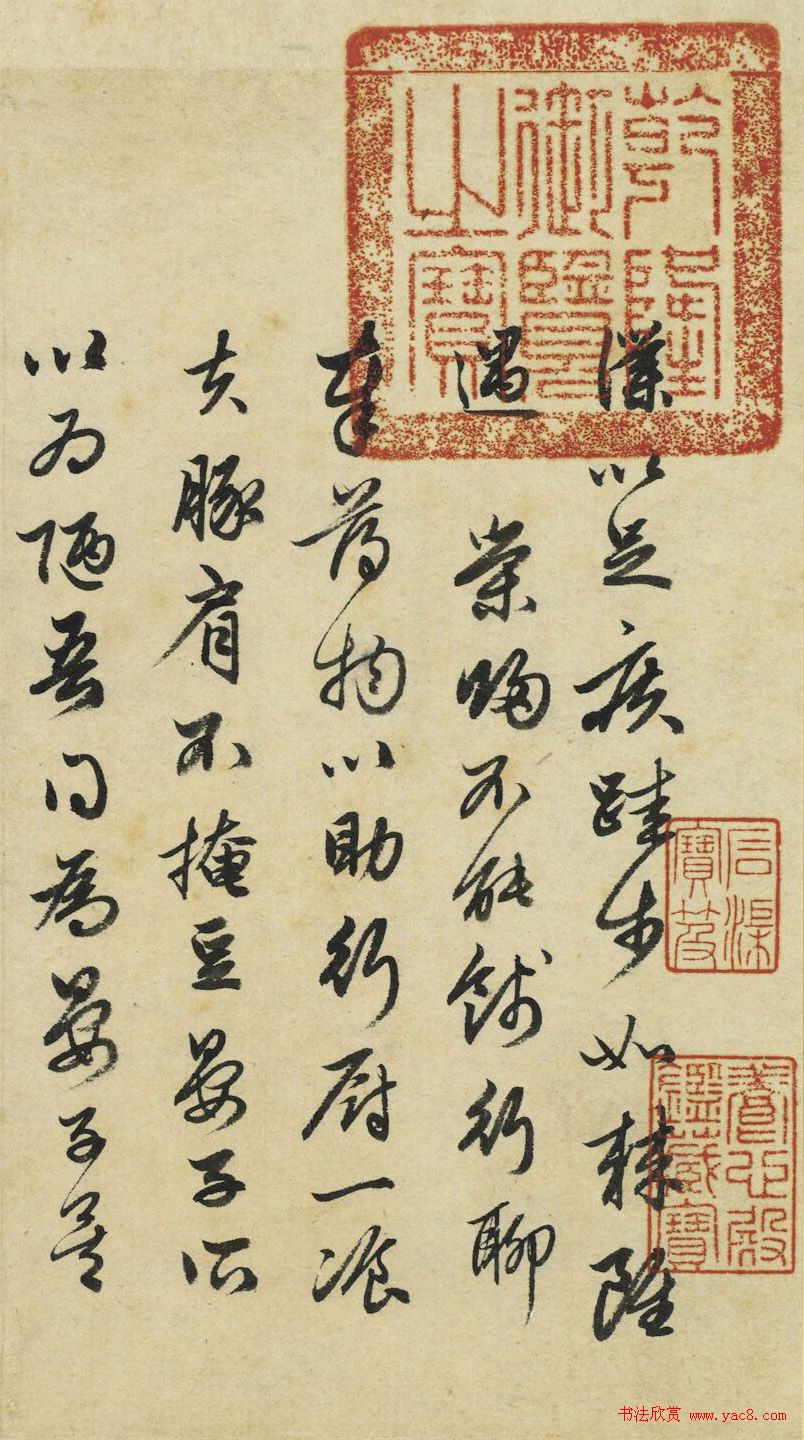 乾隆
御覽
之寶
以足疾跬步如棘雖
遇
榮歸不能餞行聊
奉物以助行厨一飡
夫豚肩不掩豆晏子所
以為陋吾同為晏子
石渠
寶笈
養心殿
鑑藏寶
书法欣赏 www.yac8.com